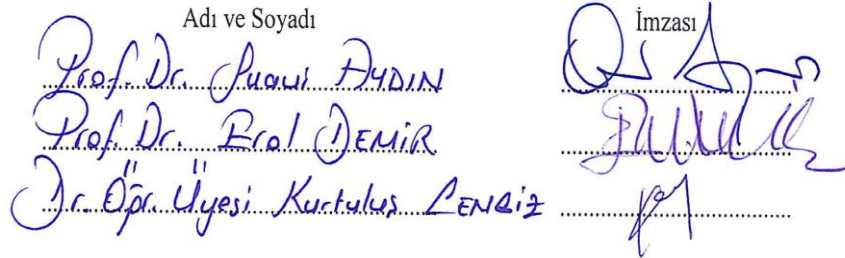 Adı ve Soyadı İmzası
Prof. Dr. Suavi AYDIN
Prof. Dr. Erol DEMİR
Dr. Öğr. Üyesi Kurtuluş CENGİZ